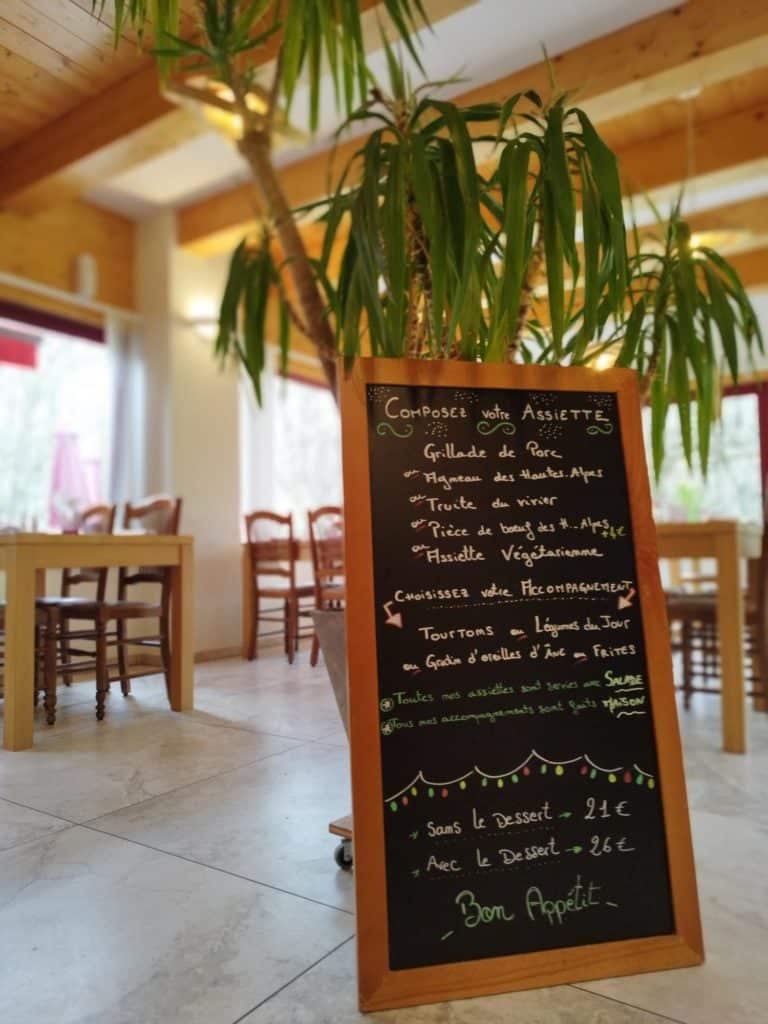 Composez votre Assiette
Grillade de Porc
ou Agneau des Hautes-Alpes
ou Truite du vivier
ou Pièce de bœuf des H-Alpes +4€
ou Assiette Végétarienne
Choisissez votre Accompagnement
Tourtons ou Légumes du Jour
ou Gratin d'oreilles d'Âne ou Frites
* Toutes nos assiettes sont servies avec SALADE
* Tous nos accompagnements sont faits MAISON
Sans le Dessert → 21€
Avec le Dessert → 26€
Bon Appétit